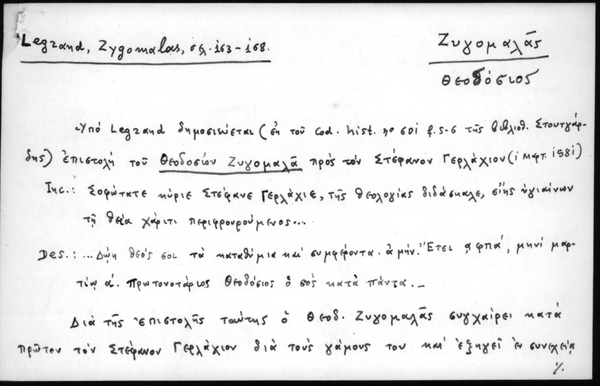 Legrand, Zygomalas, σελ. 153-158.
Ζυγομαλᾶς
Θεοδόσιος
Ὑπό Legrand δημοσιεύεται (ἐκ τοῦ Cod. hist. no 601 f. 5-6 τῆς βιβλιοθ. Στουτγάρ-
δης) ἐπιστολή τοῦ Θεοδοσίου Ζυγομαλᾶ πρός τόν Στέφανον Γερλάχιον (1 Μρτ. 1581)
Inc.: Σοφώτατε κύριε Στέφανε Γερλάχιε, τῆς θεολογίας διδάσκαλε, εἴης ὑγιαίνων
τῇ θείᾳ χάριτι περιφρουρούμενος...
Des.: ...Δῴη θεός σοι τά καταθύμια καί συμφέροντα. ἀμήν. Ἔτει αφπα', μηνί μαρ-
τίῳ α'. Πρωτονοτάριος Θεοδόσιος ὁ σός κατά πάντα._
Διά τῆς ἐπιστολῆς ταύτης ὁ Θεοδ. Ζυγομαλᾶς συγχαίρει κατά
πρῶτον τόν Στέφανον Γερλάχιον διά τούς γάμους του καί ἐξηγεῖ ἐν συνεχείᾳ
%.